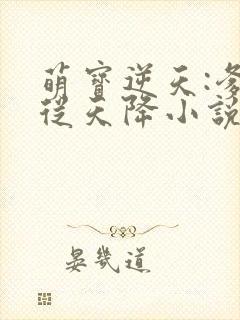 萌寶逆天:爹
從天降小說
晏幾道